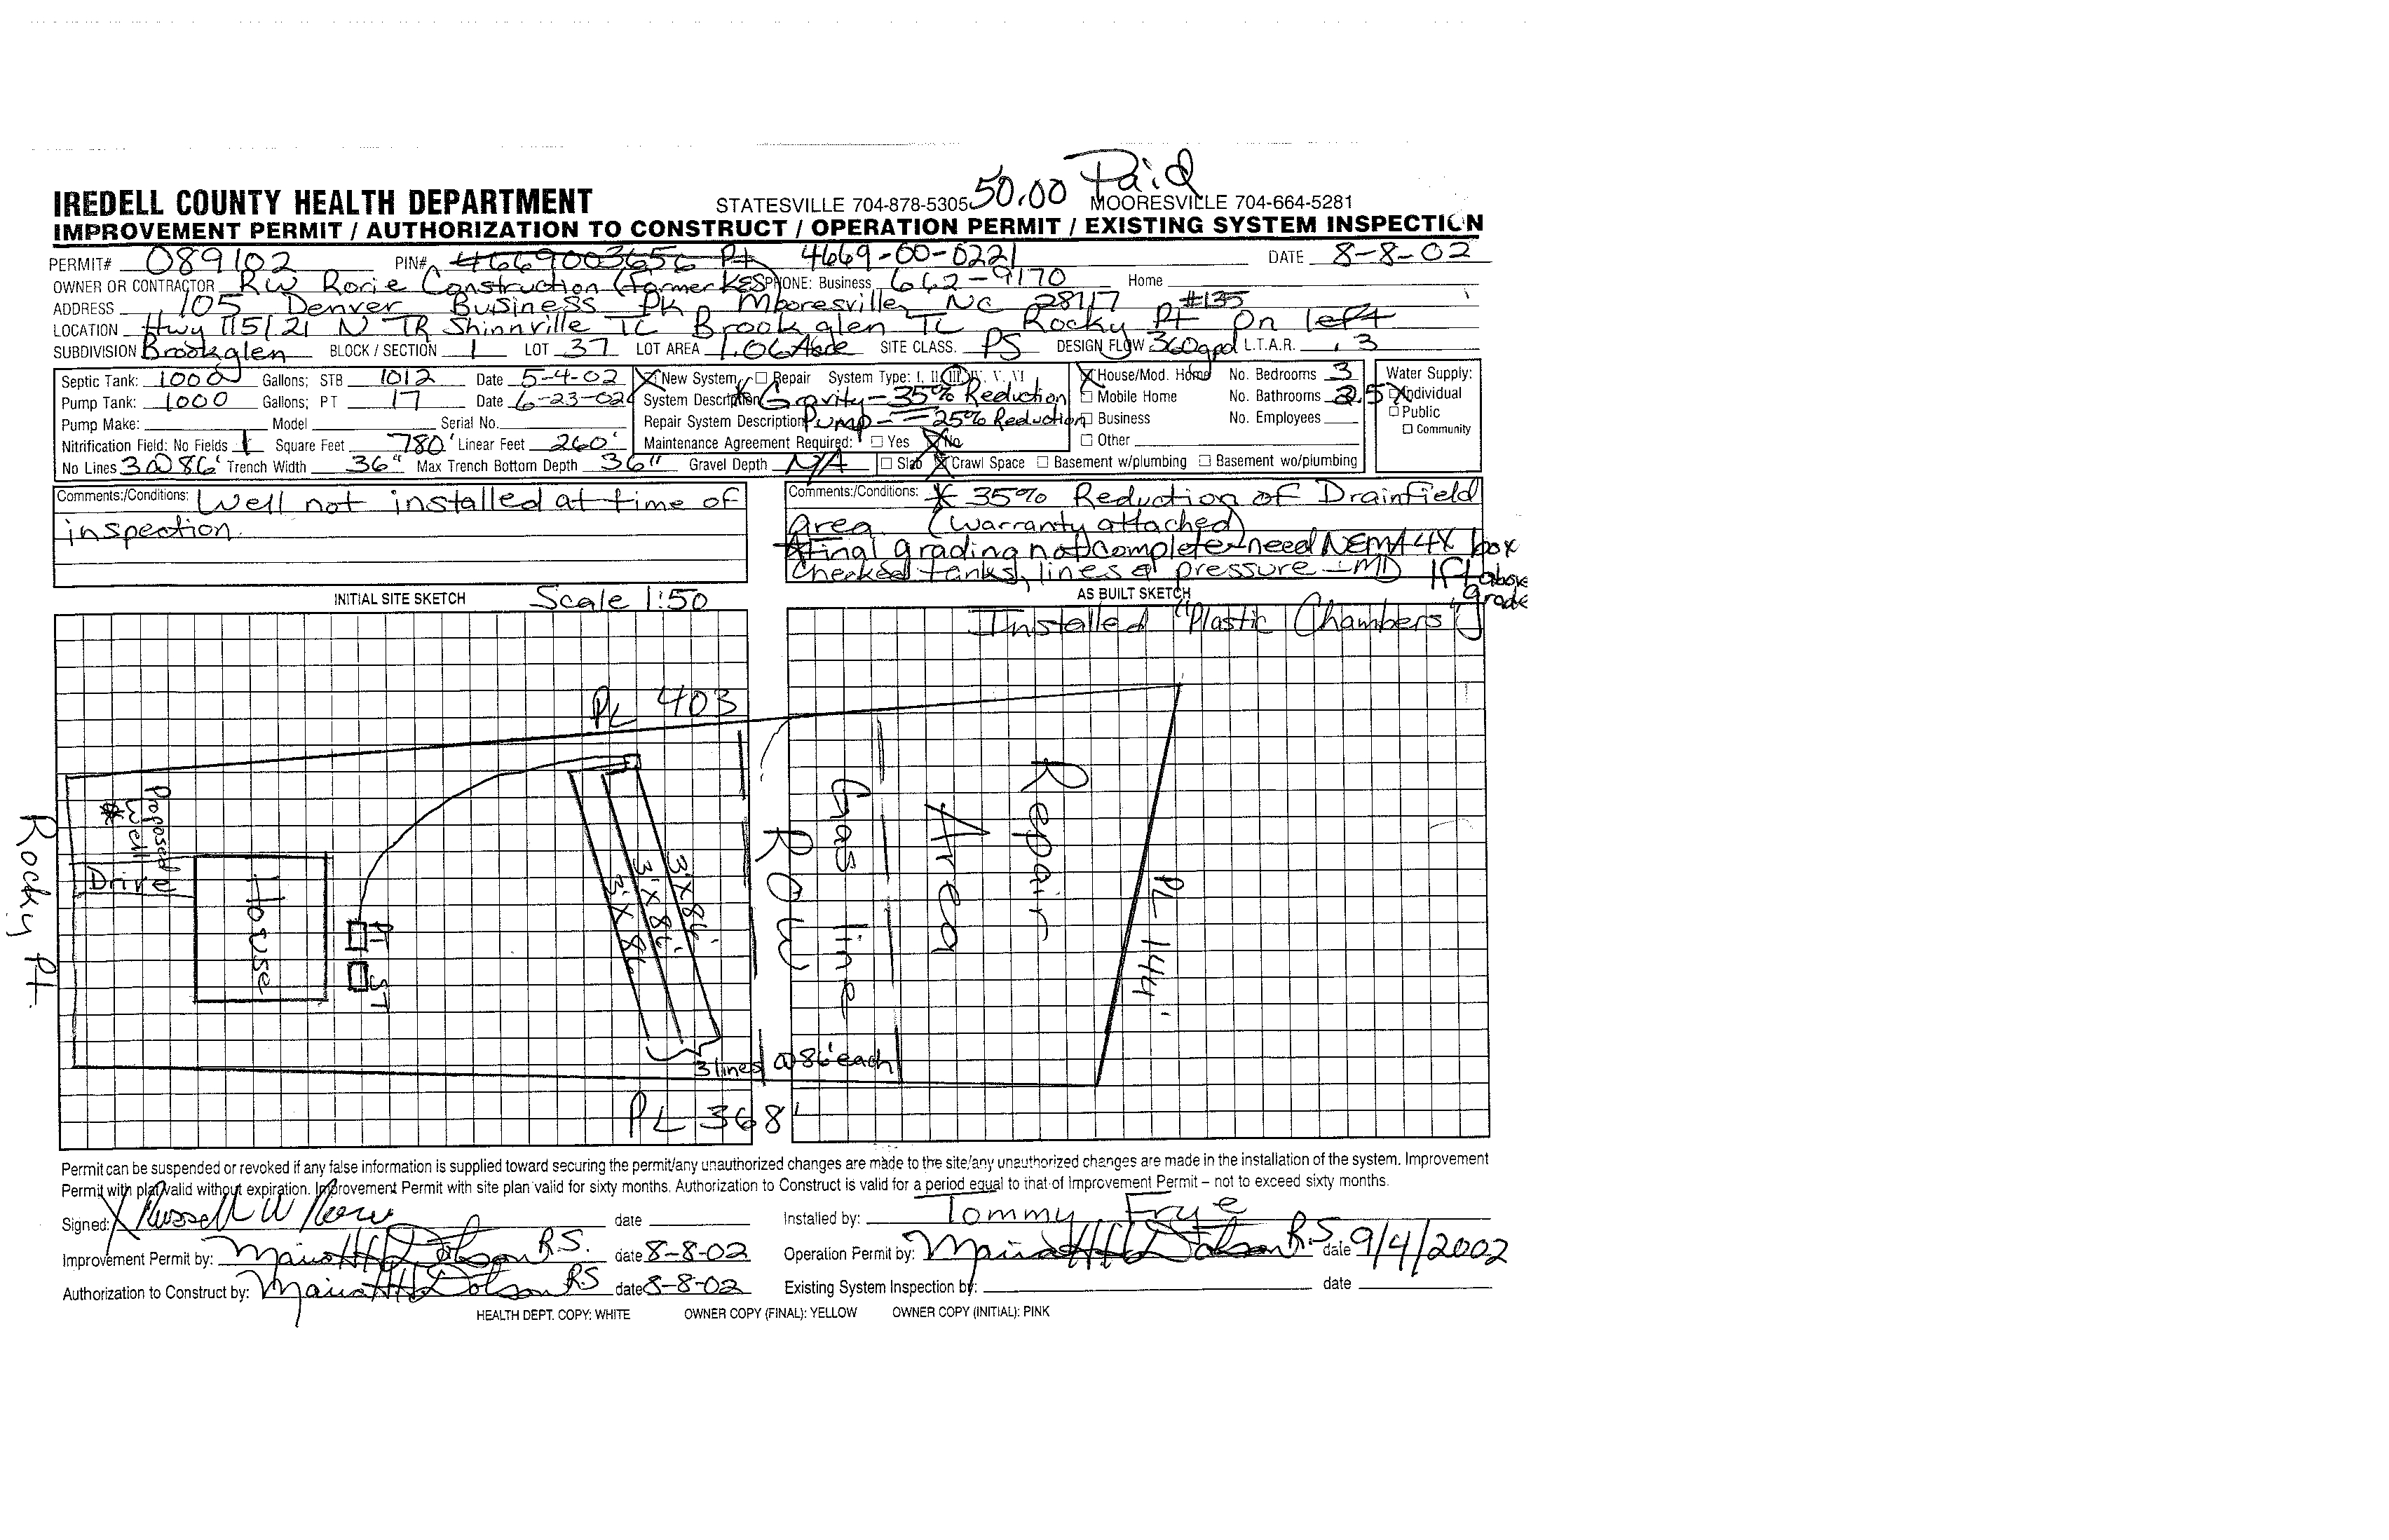 50.00 Paid
IREDELL COUNTY HEALTH DEPARTMENT STATESVILLE 704-878-5305 MOORESVILLE 704-664-5281
IMPROVEMENT PERMIT / AUTHORIZATION TO CONSTRUCT / OPERATION PERMIT / EXISTING SYSTEM INSPECTION
PERMIT# 089102 PIN# 4669003656 Pt 4669-00-0221 DATE 8-8-02
OWNER OR CONTRACTOR RW Rorie Construction (former KES PHONE: Business 662-9170 Home
ADDRESS 105 Denver Business Pk Mooresville, NC 28117 #135
LOCATION Hwy 115/21 N TR Shinnville TL Brookglen TL Rocky Pt On left
SUBDIVISION Brookglen BLOCK / SECTION 1 LOT 37 LOT AREA 1.06 Acre SITE CLASS. PS DESIGN FLOW 360gpd L.T.A.R. .3
Septic Tank: 1000 Gallons; STB 1012 Date 5-4-02 New System Repair System Type: I, II, III, IV, V, VI House/Mod. Home No. Bedrooms 3 Water Supply:
Pump Tank: 1000 Gallons; PT 17 Date 6-23-02 System Description * Gravity - 35% Reduction Mobile Home No. Bathrooms 2.5 Individual
Pump Make: Model Serial No. Repair System Description Pump - 25% Reduction Business No. Employees Public
Nitrification Field: No Fields 1 Square Feet 780' Linear Feet 260' Maintenance Agreement Required: Yes No Other Community
No Lines 3@86' Trench Width 36" Max Trench Bottom Depth 36" Gravel Depth N/A Slab Crawl Space Basement w/plumbing Basement wo/plumbing
Comments:/Conditions: Well not installed at time of
inspection.
Comments:/Conditions: * 35% Reduction of Drainfield
area (warranty attached)
*Final grading not complete - need NEMA 4X box
Checked tanks, lines & pressure - MD 1ft above
grade
INITIAL SITE SKETCH Scale 1:50
AS BUILT SKETCH
Installed "Plastic Chambers"
PL 403
Rocky Pt.
Proposed
Well
*
Drive
House
PT
ST
3'X86'
3'X86'
3'X86'
3 lines @86' each
ROW
Gas line
Repair
Area
PL 144'
PL 368'
Permit can be suspended or revoked if any false information is supplied toward securing the permit/any unauthorized changes are made to the site/any unauthorized changes are made in the installation of the system. Improvement
Permit with plat valid without expiration. Improvement Permit with site plan valid for sixty months. Authorization to Construct is valid for a period equal to that of Improvement Permit – not to exceed sixty months.
Signed: X Russell W Rorie date Installed by: Tommy Frye
Improvement Permit by: R.S. date 8-8-02 Operation Permit by: R.S. date 9/4/2002
Authorization to Construct by: RS date 8-8-02 Existing System Inspection by: date
HEALTH DEPT. COPY: WHITE OWNER COPY (FINAL): YELLOW OWNER COPY (INITIAL): PINK